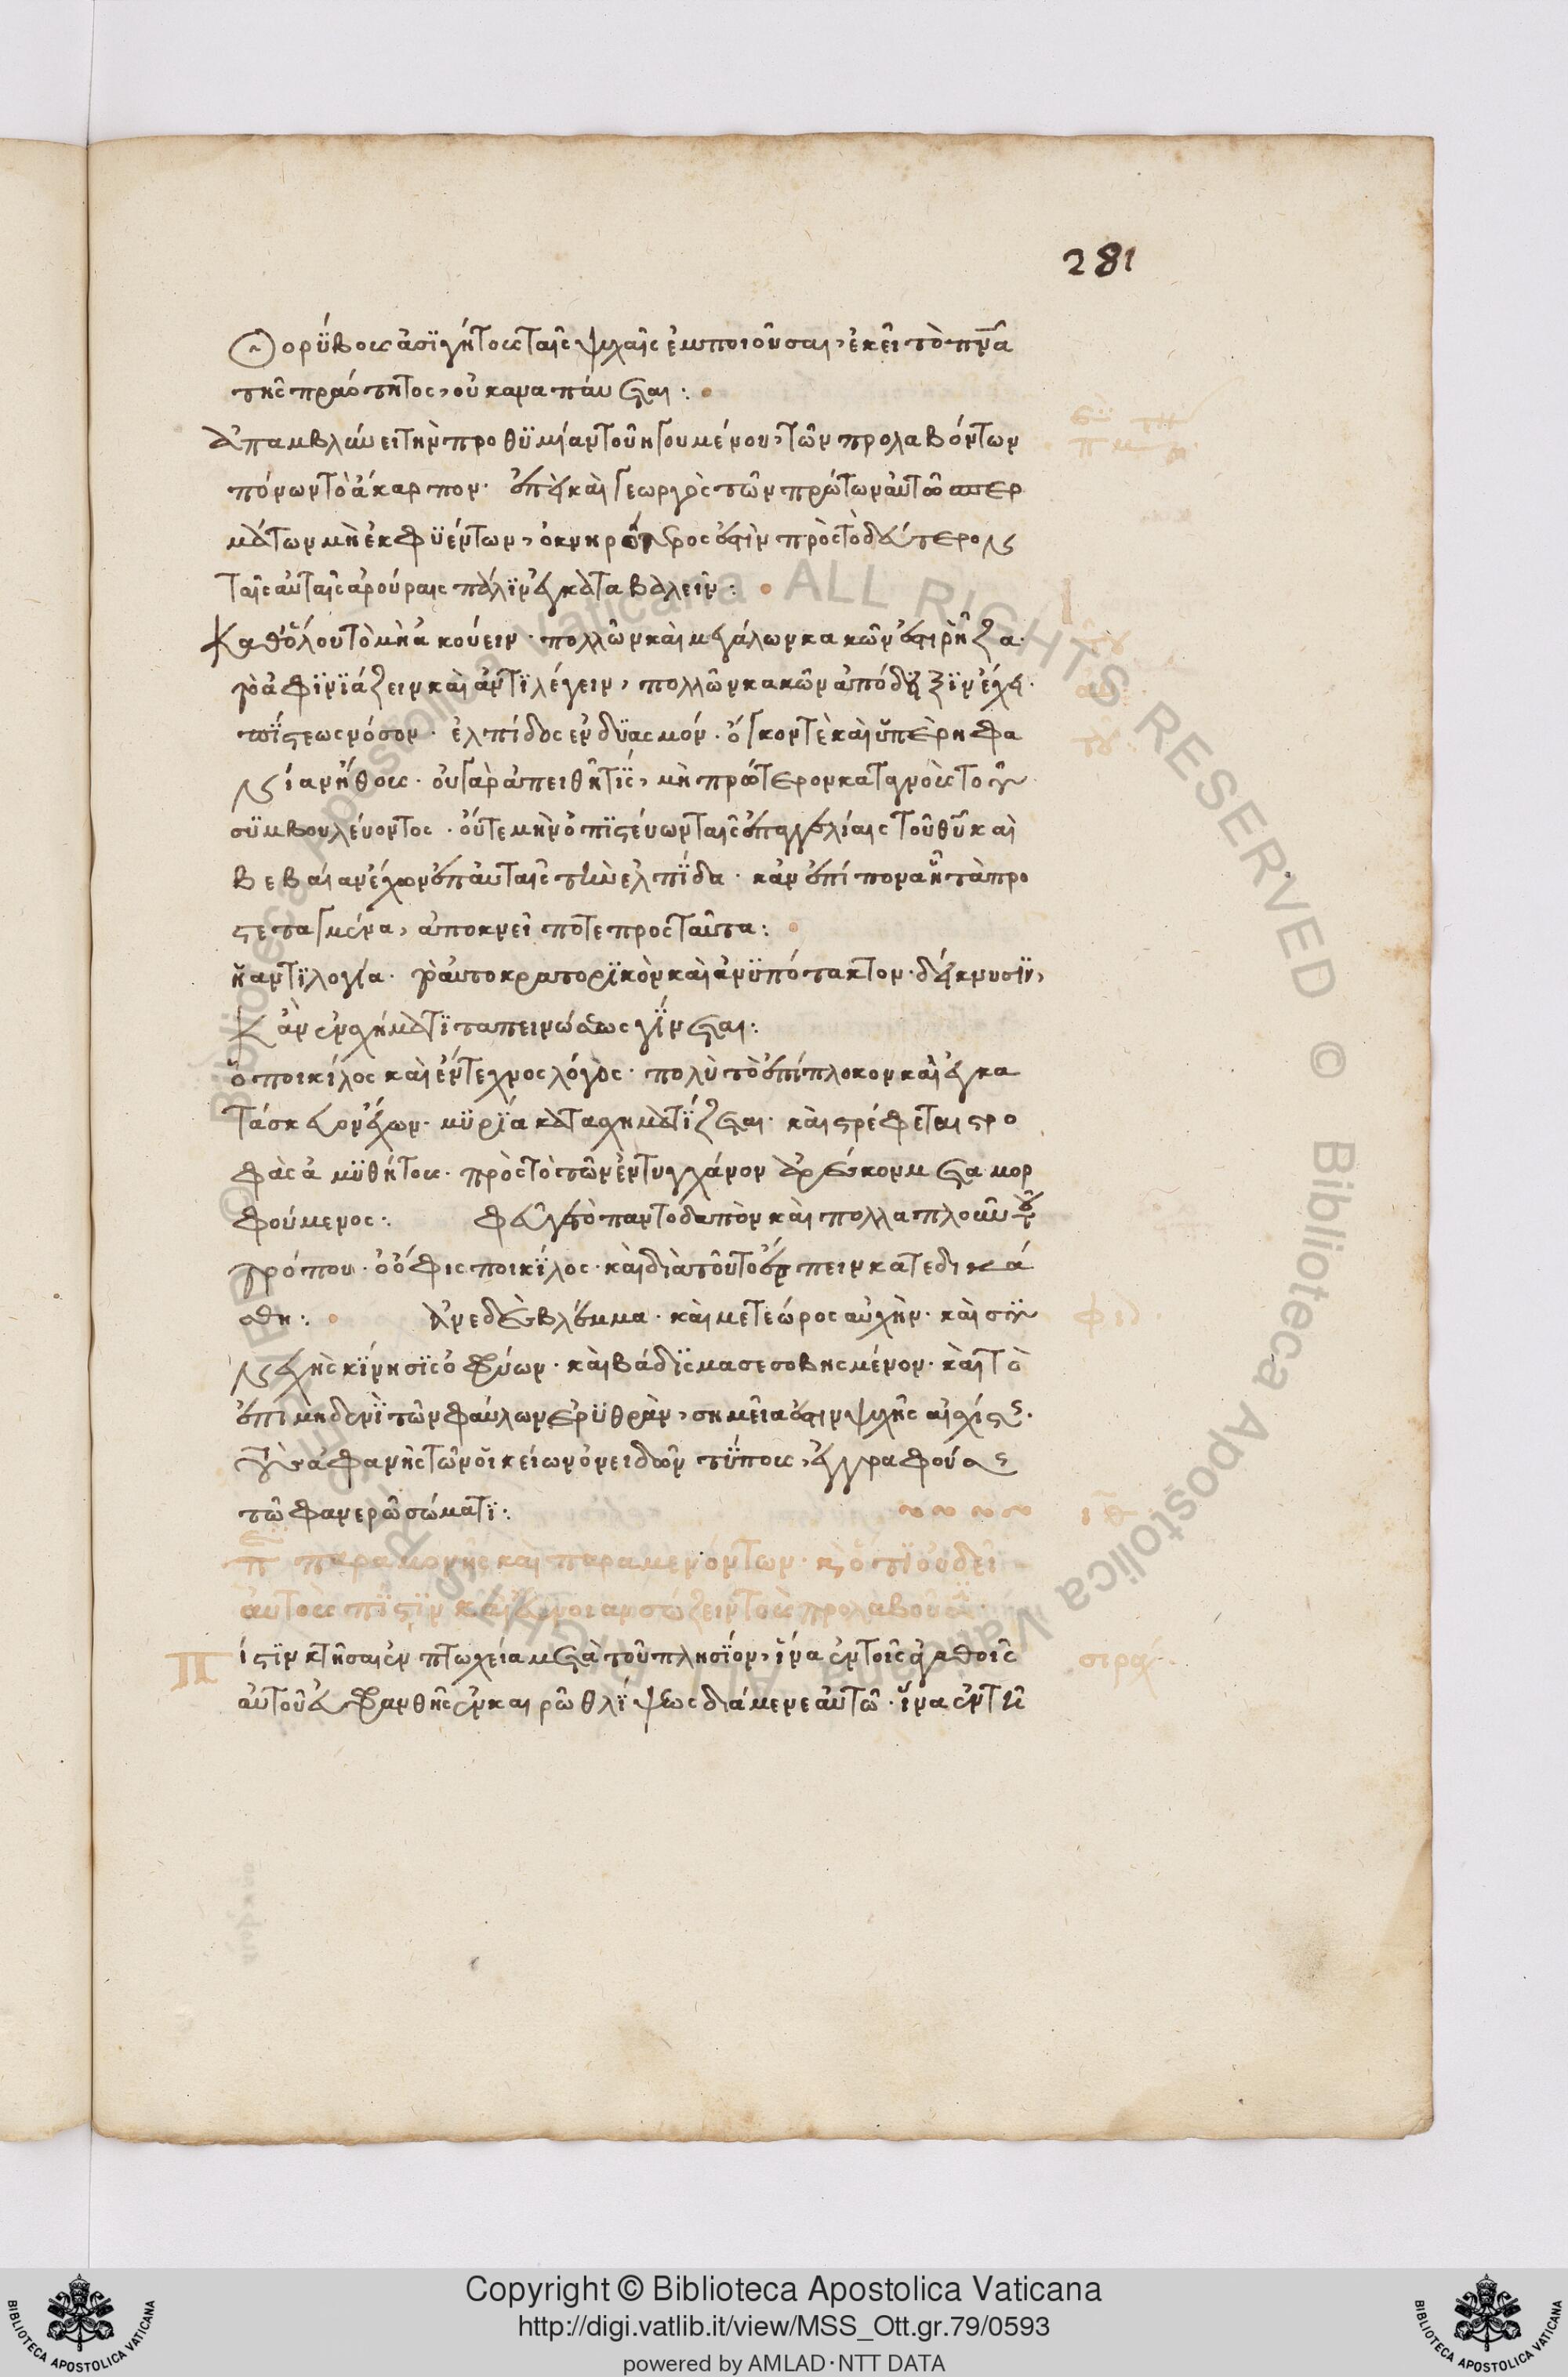 281
Θορύβους ἀσιγήτους ταῖς ψυχαῖς ἐμποιοῦσαι, ἐκεῖ τὸ πνᾶ
τῆς πραότητος, οὐκ ἀναπάυεται:
Ἀπαμβλύνει τὴν προθϋμίαν τοῦ ἡγουμένου, τῶν προλαβόντων
πόνων τὸ ἄκαρπον. ἐπεὶ καὶ γεωργὸς τῶν πρώτων αὐτῶ σπερ
μάτων μὴ ἐκφϋέντων, ὀκνηρότερος ἐστὶν πρὸς τὸ δεύτερον
ταῖς αὐταῖς ἀρούραις πάλιν ἐγκαταβαλεῖν:
Καθόλου τὸ μὴ ἀκούειν. πολλῶν καὶ μεγάλων κακῶν ἐστι ῥῆζα.
τὸ ἀφϊνϊάζειν καὶ ἀντϊλέγειν, πολλῶν κακῶν ἀπόδειξϊν ἔχει.
πΐστεως νόσον. ἐλπίδος ἐνδϋασμόν. ὄγκον τὲ καὶ ὕπερηφα
νίαν ἤθους. οὐ γὰρ ἀπειθῆ τΐς, μὴ πρότερον καταγνοὺς τοῦ
σϋμβουλέυοντος. οὔτε μὴν ὁ πϊστέυων ταῖς ἐπαγγελίαις τοῦ θῦ καὶ
βεβαίαν ἔχων ἐπ αὐταῖς τὴν ἐλπΐδα. κἂν ἐπίπονα ἦ τὰ προ
στεταγμένα, ἀποκνεῖ ποτε προς ταῦτα:
ἡ αντϊλογία. τὸ ἀυτοκρατορϊκὸν καὶ ἀνϋπότακτον. δείκνυσϊν,
κἂν ἐν σχήματϊ ταπεινώσεως γΐνεται:
ὁ ποικίλος καὶ ἔντεχνος λόγος. πολὺ τὸ ἐπίπλοκον καὶ ἐγκα
τάσκευον ἔχων. μϋρΐα κατασχηματΐζεται. καὶ στρέφεται στρο
φὰς ἀμϋθήτους. πρὸς τὸ τῶν ἐντυγχάνον ἀρέσκον μεταμορ
φούμενος: φεῦγε τὸ παντοδαπὸν καὶ πολλαπλοῦν τοῦ
τρόπου. ὁ ὄφις ποικΐλος. καὶ διὰ τοῦτο ἕρπειν κατεδικά
σθη: Ἀνεδὲς βλέμμα. καὶ μετέωρος αὐχὴν. καὶ συ
νεχὴς κΐνησϊς ὀφρύων. καὶ βάδϊσμα σεσοβησμένον. καὶ τὸ
ἐπὶ μηδενὶ τῶν φαύλων ἐρϋθρὰν, σημεῖα ἐστιν ψυχῆς αἰσχίστης.
τοὺς ἀφανὴς τῶν οἰκείων ὀνειδῶν τΰπους, ἐγγραφούσης
τῶ φανερῶ σώματϊ:
π παραμονῆς καὶ παραμενόντων. κ, ὅτϊ οὐ δεῖ
αὐτοὺς πΐστϊν καὶ εὔνοιαν σώζειν τοὺς προλαβοῦσι
Πίστϊν κτῆσαι ἐν πτωχεία μετὰ τοῦ πλησΐον, ἵνα ἐν τοῖς ἀγαθοῖς
αὐτοῦ εὐφρανθῆς ἐν καιρῶ θλΐψεως διάμενε αὐτῶ. ἵνα ἐν τῆ
σιρα
Copyright © Biblioteca Apostolica Vaticana
http://digi.vatlib.it/view/MSS_Ott.gr.79/0593
powered by AMLAD·NTT DATA
BIBLIOTECA APOSTOLICA VATICANA
BIBLIOTECA APOSTOLICA VATICANA
© Biblioteca Apostolica Vaticana ALL RIGHTS RESERVED © Biblioteca Apostolica Vaticana ALL RIGHTS RESERVED